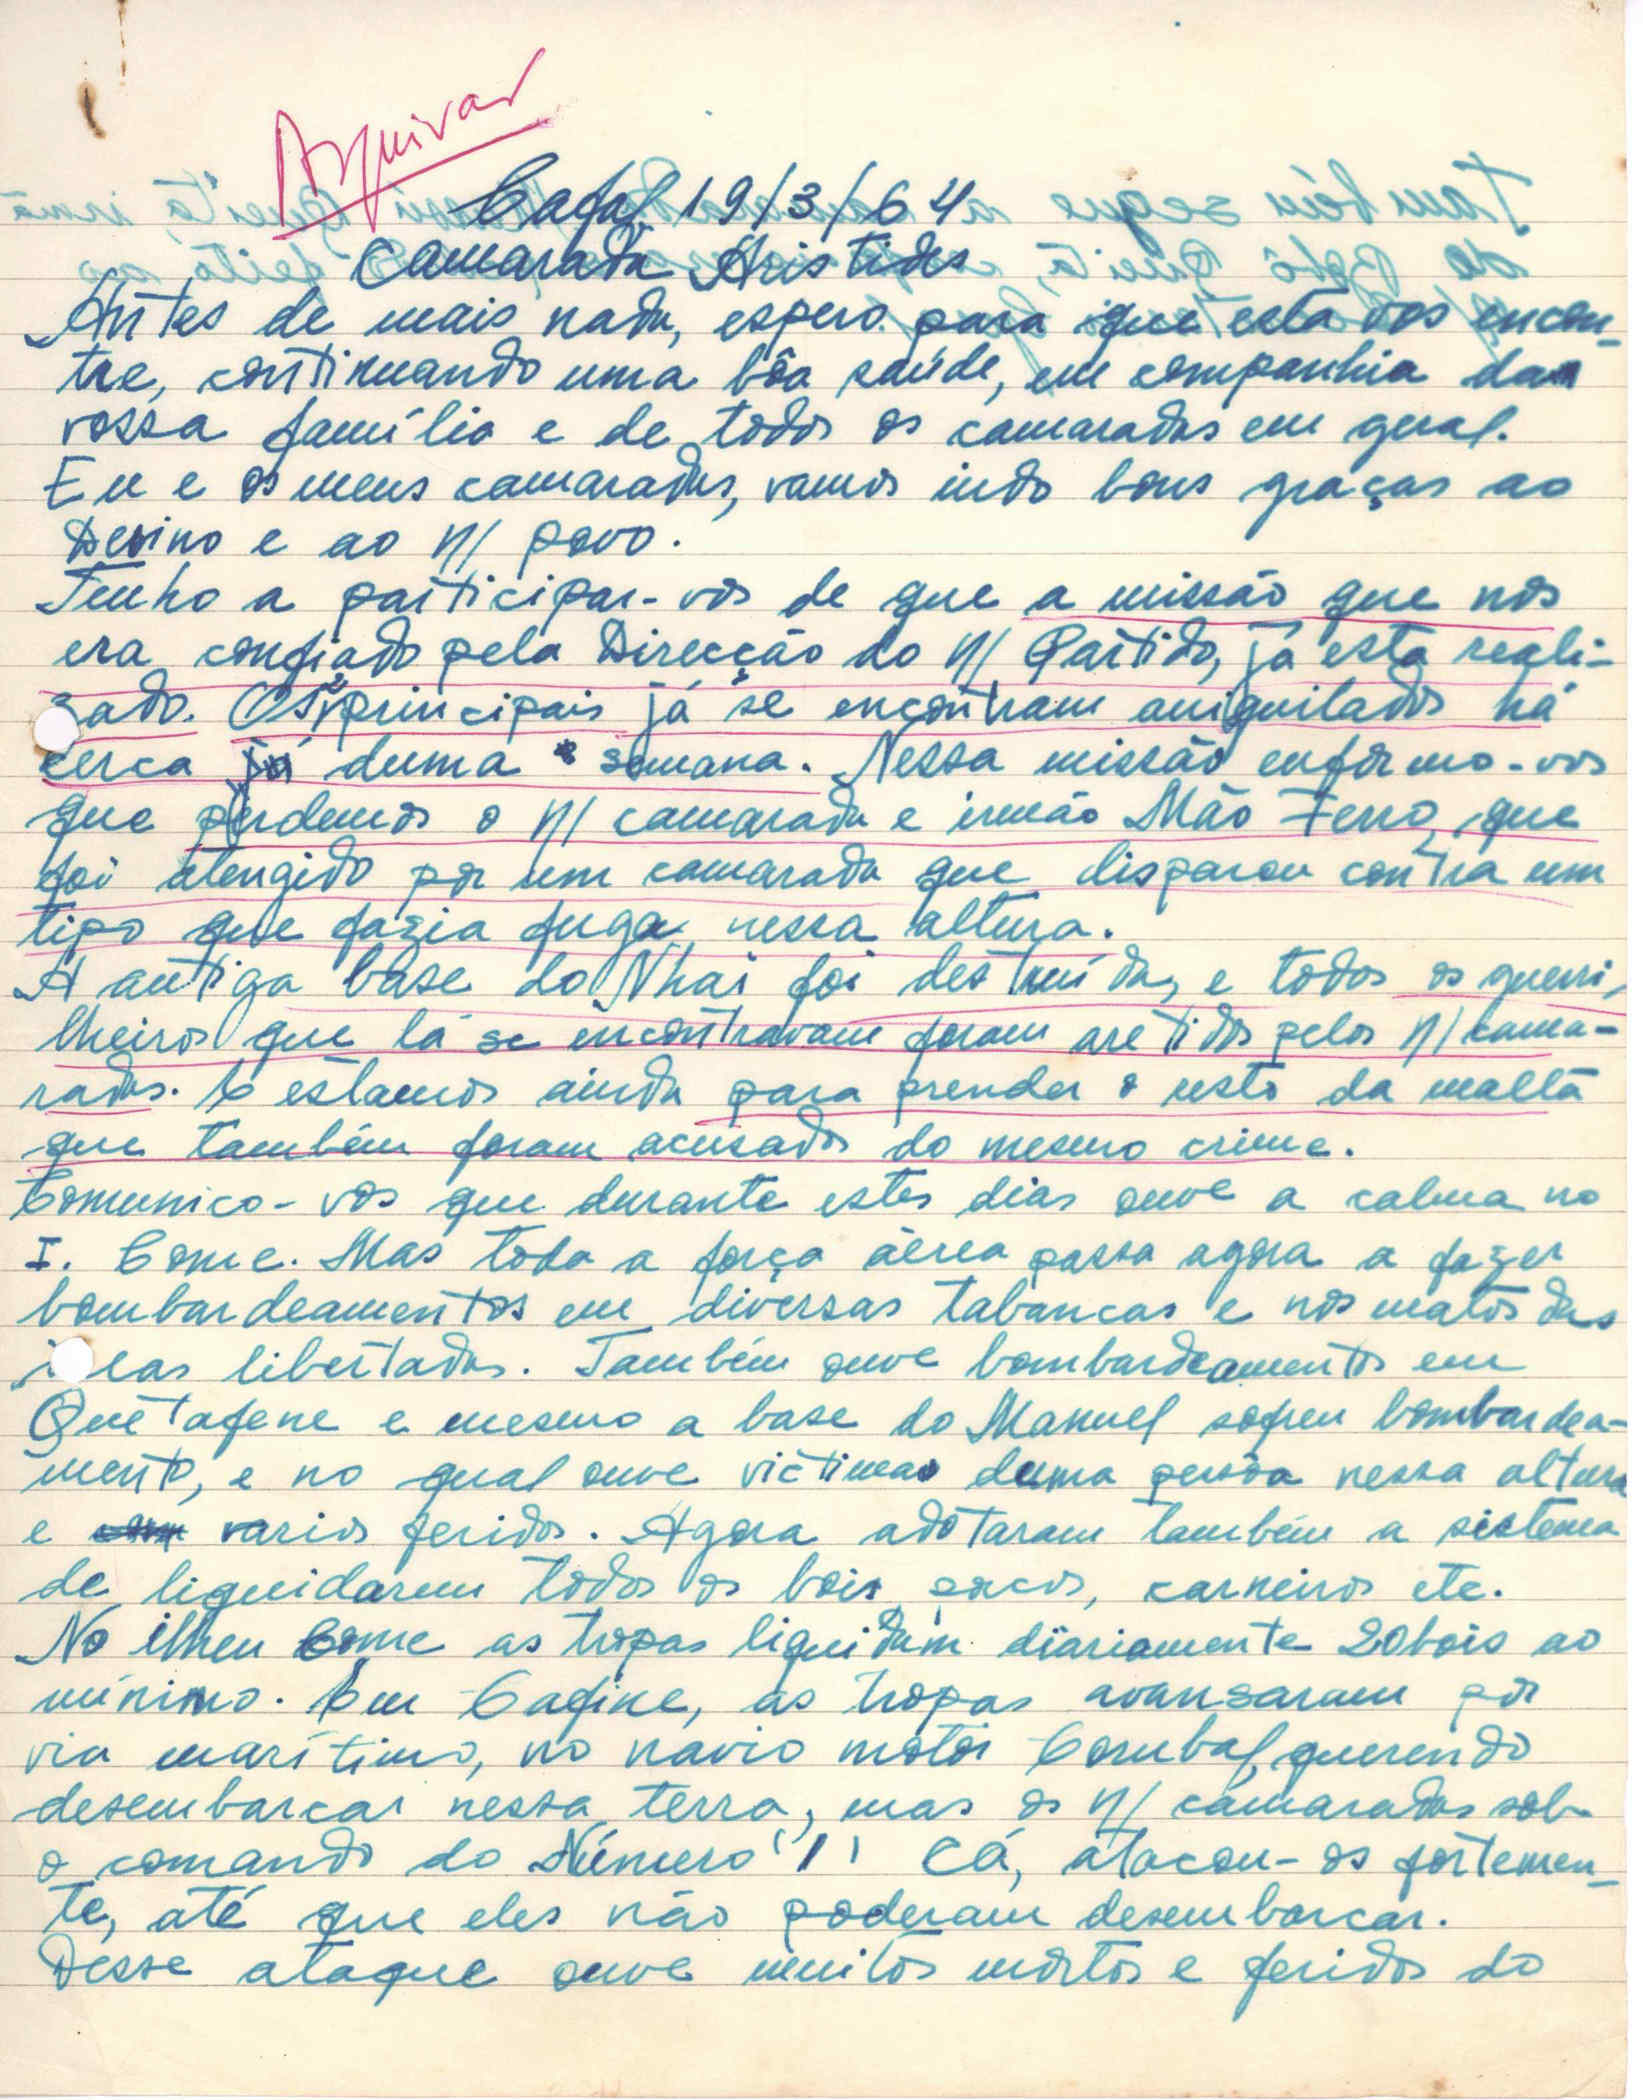 Arquivar
Cafal 19/3/64
Camarada Aristides
Antes de mais nada, espero para que esta vos encon-
tre, continuando uma bôa saúde, em companhia da
vossa família e de todos os camaradas em geral.
Eu e os meus camaradas, vamos indo bons graças ao
Devino e ao N/ povo.
Tenho a participar-vos de que a missão que nos
era confiado pela Direcção do N/ Partido, já esta reali-
zado. Os 2 principais já se encontram aniquilados há
cerca já duma semana. Nessa missão enformo-vos
que perdemos o N/ camarada e irmão Mão Ferro, que
foi atengido por um camarada que disparou contra um
tipo que fazia fuga nessa altura.
A antiga base do Nhai foi destruída, e todos os guerri-
lheiros que lá se encontravam foram aretidos pelos N/ cama-
radas. E estamos ainda para prender o resto da malta
que também foram acusados do mesmo crime.
Comunico-vos que durante estes dias ouve a calma no
I. Come. Mas toda a força aérea passa agora a fazer
bombardeamentos em diversas tabancas e nos matos das
libertadas. Também ouve bombardeamentos em
Quetafene e mesmo a base do Manuel sofreu bombardea-
mento, e no qual ouve victimas duma pessôa nessa altura
e varios feridos. Agora adotaram também a sistema
de liquidarem todos os bois, carneiros etc.
No ilheu Come as tropas liquidam diáriamente 20 bois ao
mínimo. Em Cafine, as tropas avansaram por
via marítimo, no navio motor Corubal, querendo
desembarcar nessa terra, mas os N/ camaradas sob
o comando do Número '1' Cá, atacou-os fortemen-
te, até que eles não poderam desembarcar.
Desse ataque ouve muitos mortos e feridos do